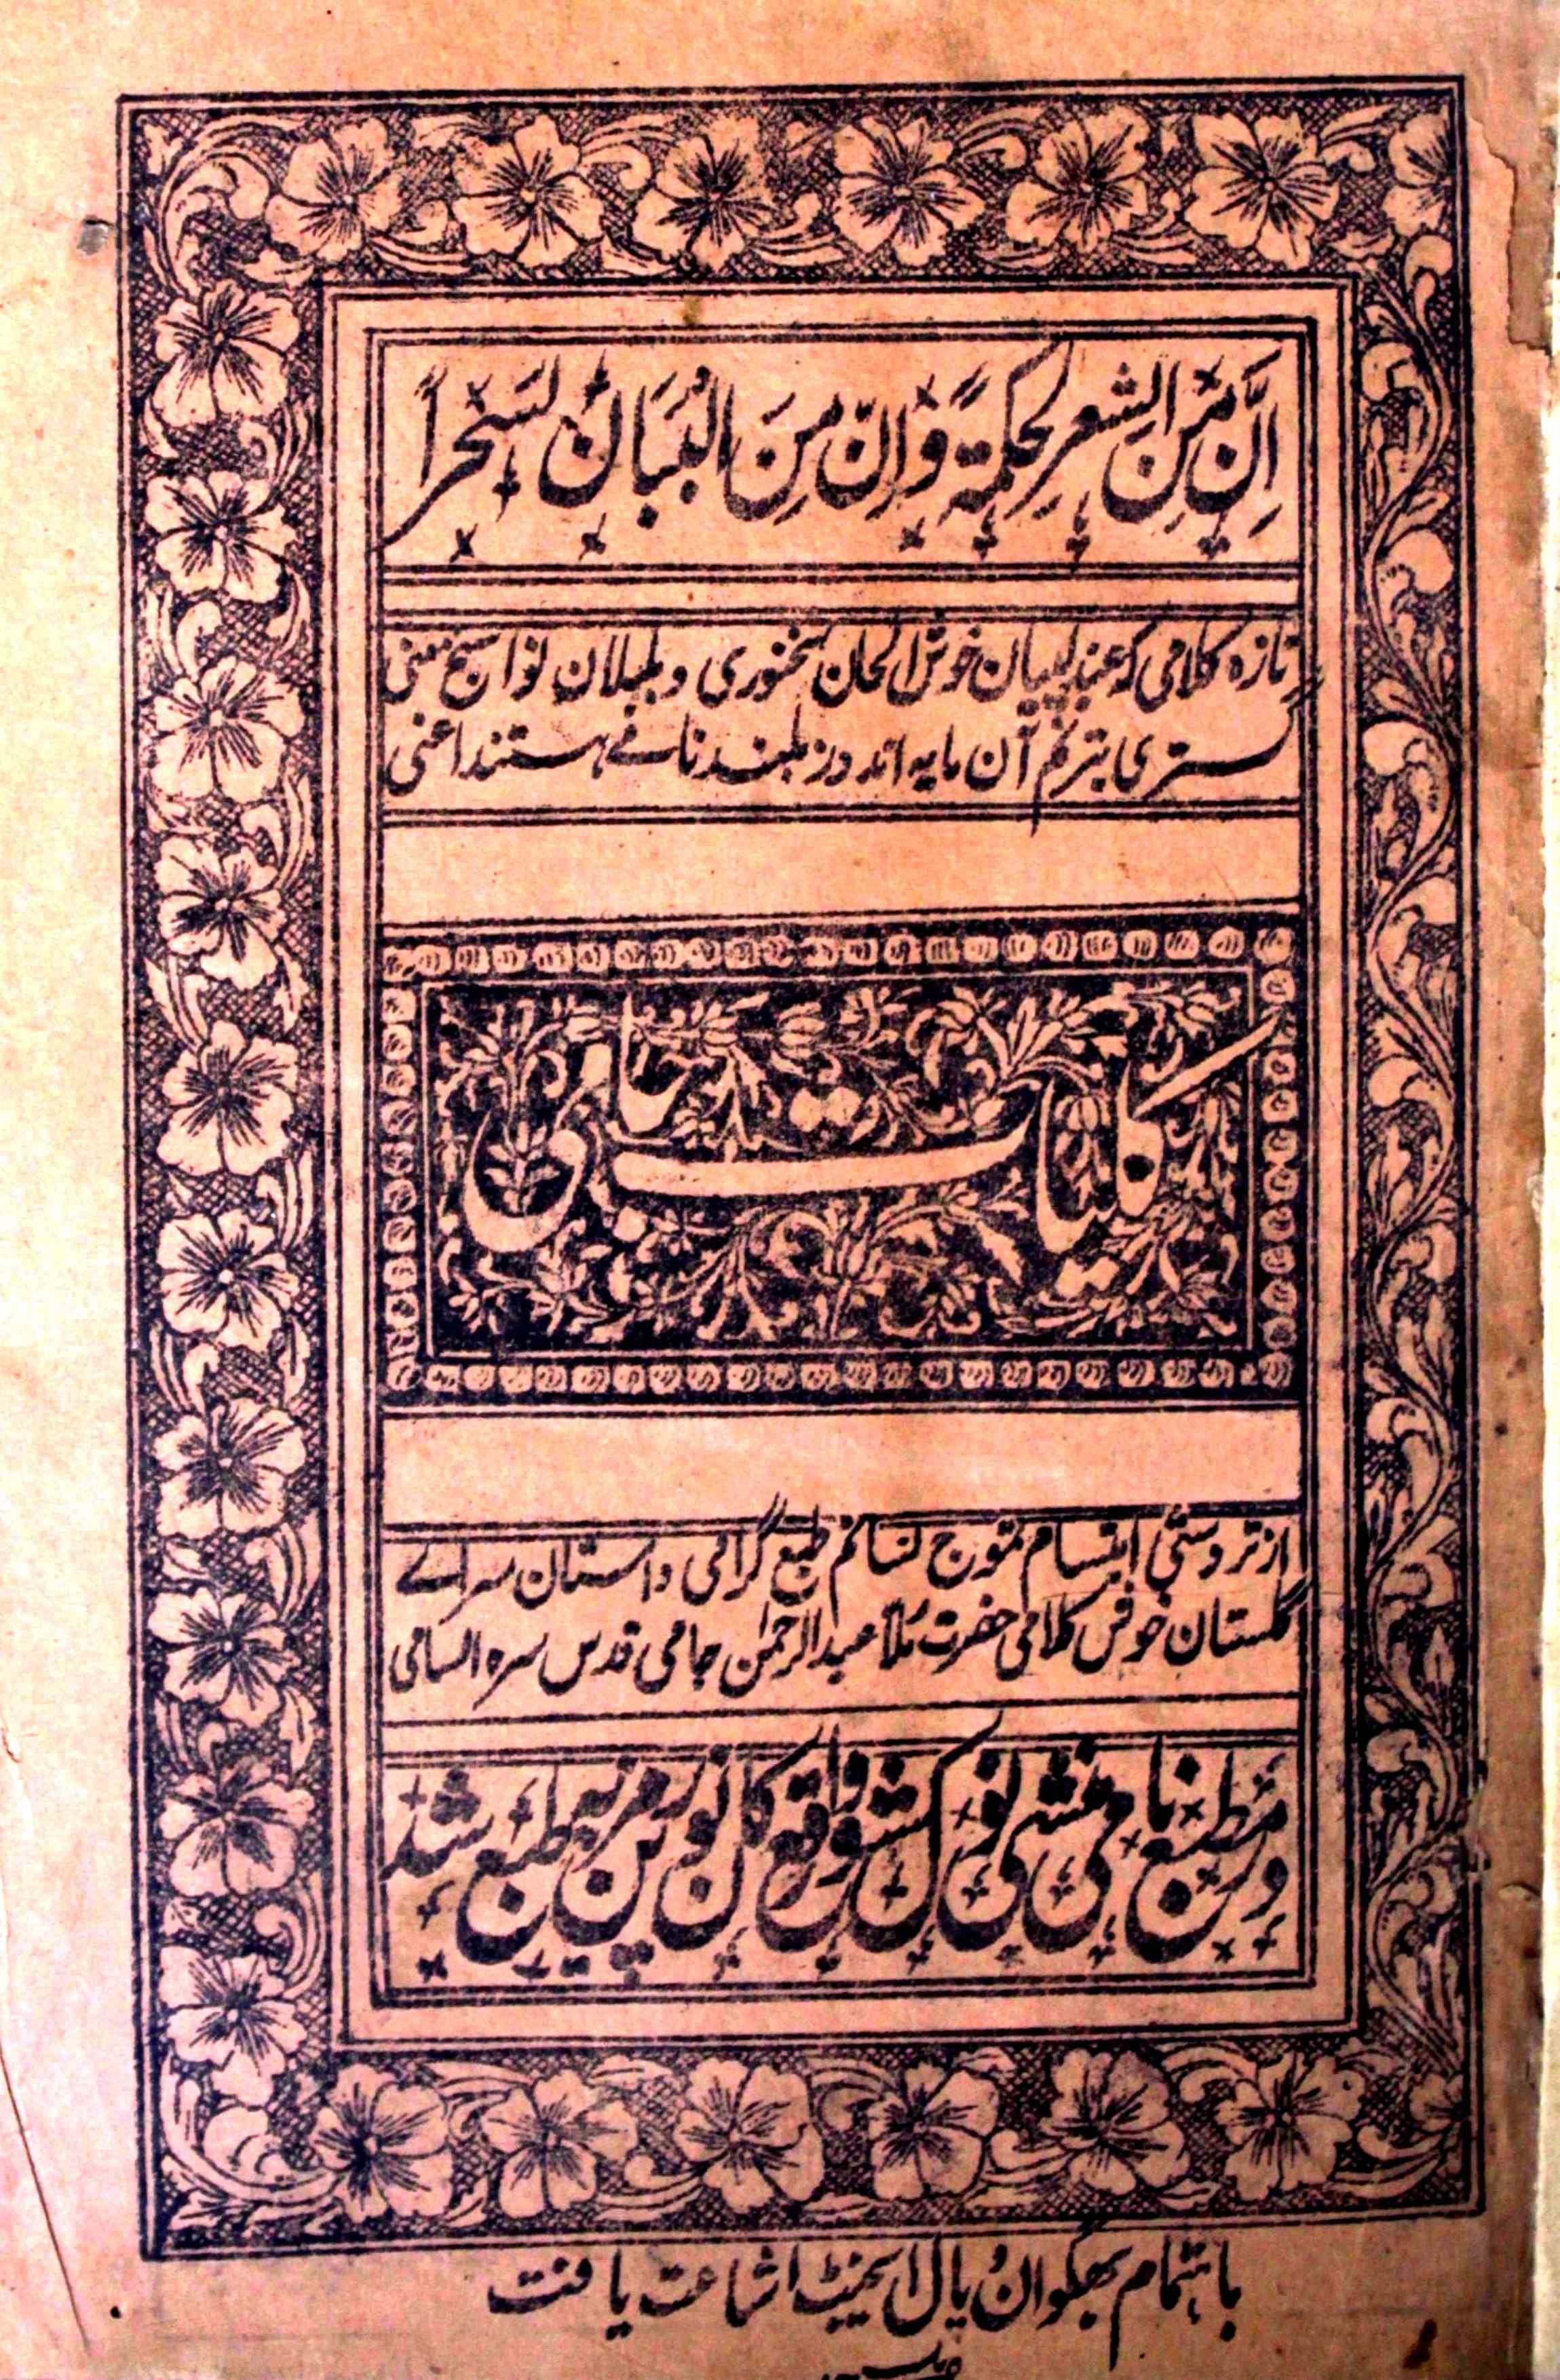 اِنَّ مِنَ الشعرِ لحکمۃً وَاِنّ مِنَ البَیَانِ لَسَحْراً
تازہ کلامی کہ عندلیبان خوش الحان سخنوری و بلبلان نوا سنج معنی
گستری بترنم آن مایہ اندوز بلند نامے ہستند اعنی
کلیات جامی
از تر دستی ابتسام تموج نسائم طبع گرامی داستان سراے
گلستان خوش کلامی حضرت مُلا عبدالرحمٰن جامی قدس سرہ السامی
در مطبع نامی منشی نولکشور واقع کانپور بمزین طبع شد
باہتمام بھگوان دیال ایجنٹ اشاعت یافت